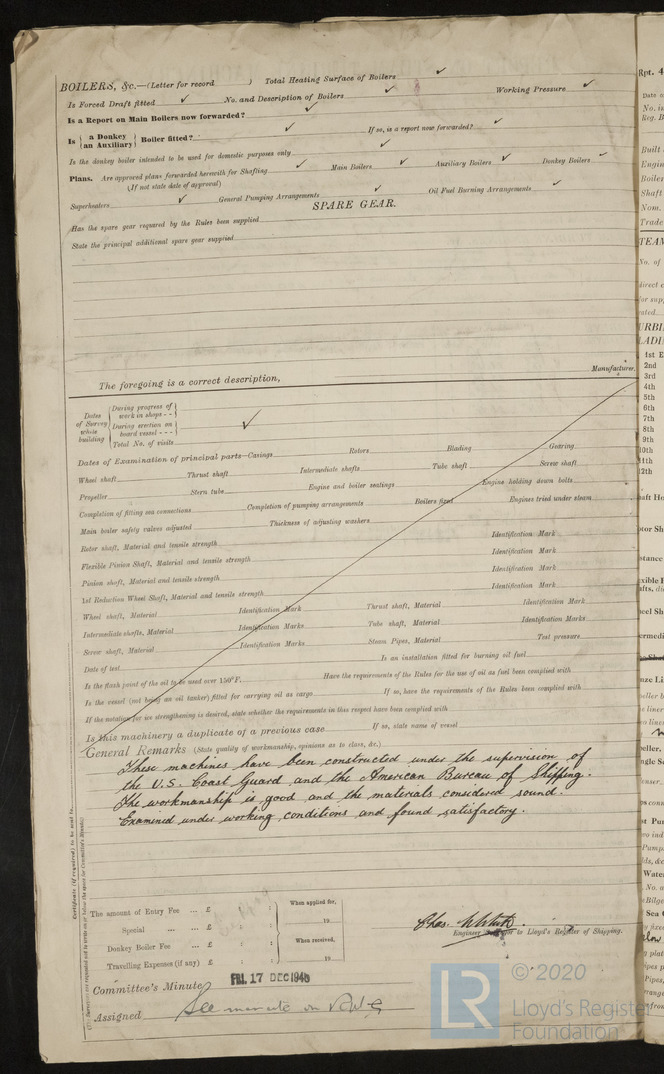 BOILERS, &c.—(Letter for record ) Total Heating Surface of Boilers ✓
Is Forced Draft fitted ✓ No. and Description of Boilers ✓ Working Pressure ✓
Is a Report on Main Boilers now forwarded? ✓
Is { a Donkey / an Auxiliary } Boiler fitted? ✓ If so, is a report now forwarded? ✓
Is the donkey boiler intended to be used for domestic purposes only ✓
Plans. Are approved plans forwarded herewith for Shafting ✓ Main Boilers ✓ Auxiliary Boilers ✓ Donkey Boilers ✓
(If not state date of approval)
Superheaters ✓ General Pumping Arrangements ✓ Oil Fuel Burning Arrangements ✓
SPARE GEAR.
Has the spare gear required by the Rules been supplied
State the principal additional spare gear supplied
Manufacturer.
The foregoing is a correct description,
Dates of Survey while building
During progress of work in shops - -
During erection on board vessel - - - ✓
Total No. of visits
Dates of Examination of principal parts—Casings Rotors Blading Gearing
Wheel shaft Thrust shaft Intermediate shafts Tube shaft Screw shaft
Propeller Stern tube Engine and boiler seatings Engine holding down bolts
Completion of fitting sea connections Completion of pumping arrangements Boilers fixed Engines tried under steam
Main boiler safety valves adjusted Thickness of adjusting washers
Rotor shaft, Material and tensile strength Identification Mark
Flexible Pinion Shaft, Material and tensile strength Identification Mark
Pinion shaft, Material and tensile strength Identification Mark
1st Reduction Wheel Shaft, Material and tensile strength Identification Mark
Wheel shaft, Material Identification Mark Thrust shaft, Material Identification Mark
Intermediate shafts, Material Identification Marks Tube shaft, Material Identification Marks
Screw shaft, Material Identification Marks Steam Pipes, Material Test pressure
Date of test Is an installation fitted for burning oil fuel
Is the flash point of the oil to be used over 150°F. Have the requirements of the Rules for the use of oil as fuel been complied with
Is the vessel (not being an oil tanker) fitted for carrying oil as cargo If so, have the requirements of the Rules been complied with
If the notation for ice strengthening is desired, state whether the requirements in this respect have been complied with
Is this machinery a duplicate of a previous case If so, state name of vessel
General Remarks (State quality of workmanship, opinions as to class, &c.)
These machines have been constructed under the supervision of
the U.S. Coast Guard and the American Bureau of Shipping.
The workmanship is good and the materials considered sound.
Examined under working conditions and found satisfactory.
Certificate (if required) to be sent to
The amount of Entry Fee ... £ : : When applied for,
Special ... ... £ : : 19
Donkey Boiler Fee ... £ : : When received,
Travelling Expenses (if any) £ : : 19
Engineer Surveyor to Lloyd's Register of Shipping.
Committee's Minute FRI. 17 DEC 1948
Assigned See minute on
© 2020
LR
Lloyd's Register
Foundation
Rpt. 4